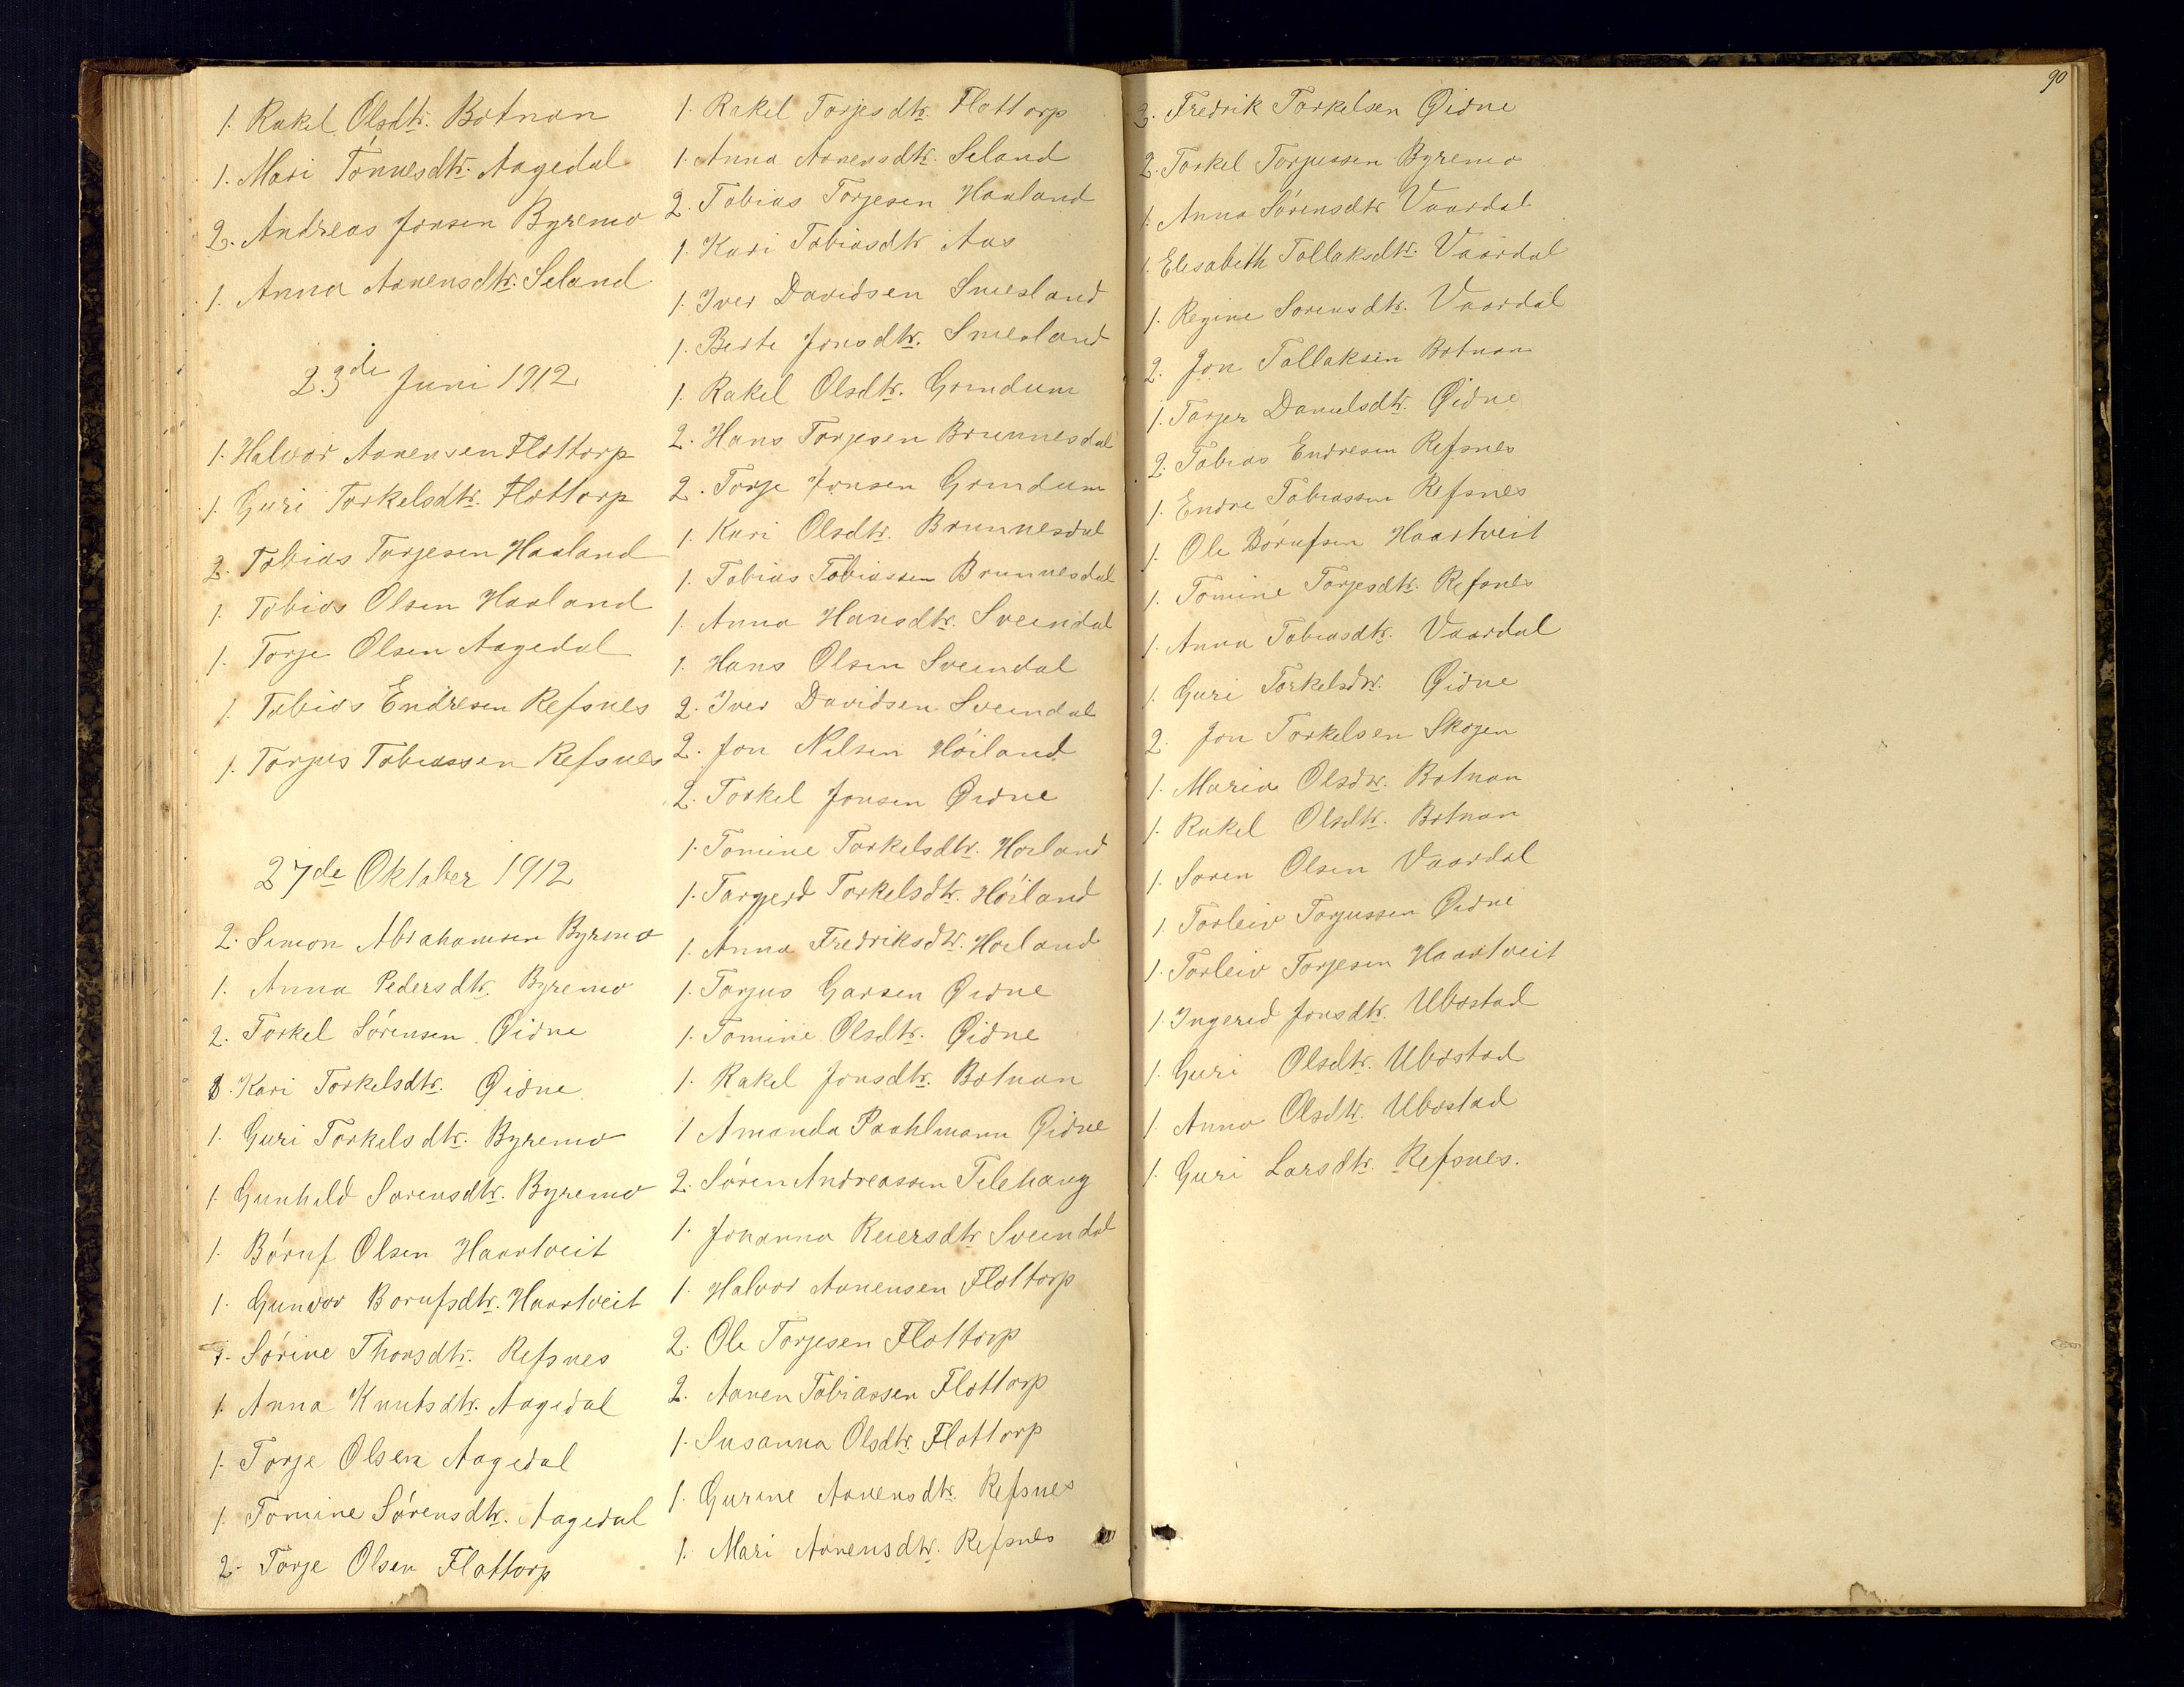 1. Rakel Olsdtr. Botnan
1. Mari Tønnesdtr. Aagedal
2. Andreas Jonsen Byremo
1. Anna Aanensdtr. Seland
23de Juni 1912
1. Halvor Aanensen Flottorp
1. Guri Torkelsdtr. Flottorp
2. Tobias Torjesen Haaland
1. Tobias Olsen Haaland
1. Torje Olsen Aagedal
1. Tobias Endresen Refsnes
1. Torjus Tobiassen Refsnes
27de Oktober 1912
2. Simon Abrahamsen Byremo
1. Anna Pedersdtr. Byremo
2. Torkel Sørensen Øidne
1. Kari Torkelsdtr. Øidne
1. Guri Torkelsdtr. Byremo
1. Gunhild Sørensdtr. Byremo
1. Børuf Olsen Haartveit
1. Gunvor Børufsdtr. Haartveit
1. Sørine Thorsdtr. Refsnes
1. Anna Knutsdtr. Aagedal
1. Torje Olsen Aagedal
1. Tomine Sørensdtr. Aagedal
2. Torje Olsen Flottorp
1. Rakel Torjesdtr. Flottorp
1. Anna Aanensdtr. Seland
2. Tobias Torjesen Haaland
1. Kari Tobiasdtr Aas
1. Iver Davidsen Smesland
1. Berte Jonsdtr. Smesland
1. Rakel Olsdtr. Grindum
2. Hans Torjesen Brunnesdal
2. Torje Jonsen Grindum
1. Kari Olsdtr. Brunnesdal
1. Tobias Tobiassen Brunnesdal
1. Anna Hansdtr. Sveindal
1. Hans Olsen Sveindal
2. Iver Davidsen Sveindal
2. Jon Nilsen Høiland
2. Torkel Jonsen Øidne
1. Tomine Torkelsdtr. Høiland
1. Targjerd Torkelsdtr. Høiland
1. Anna Fredriksdtr. Høiland
1. Torjus Garsen Øidne
1. Tomine Olsdtr. Øidne
1. Rakel Jonsdtr. Botnan
1 Amanda Paahlmann Øidne
2. Søren Andreassen Telehaug
1. Johanna Reiersdtr Sveindal
1. Halvor Aanensen Flottorp
2. Ole Torjesen Flottorp
2. Aanen Tobiassen Flottorp
1. Susanna Olsdtr. Flottorp
1. Gurine Aanensdtr. Refsnes
1. Mari Aanensdtr. Refsnes
90
2. Fredrik Torkelsen Øidne
2. Torkel Torjussen Byremo
1. Anna Sørensdtr Vaardal
1. Elisabeth Tallaksdtr. Vaardal
1. Regine Sørensdtr. Vaardal
2. Jon Tallaksen Botnan
1. Torjer Danielsdtr. Øidne
2. Tobias Endresen Refsnes
1. Endre Tobiassen Refsnes
1. Ole Børufsen Haartveit
1. Tomine Torjesdtr. Refsnes
1. Anna Tobiasdtr. Vaardal
1. Guri Torkelsdtr. Øidne
2. Jon Torkelsen Skogen
1. Maria Olsdtr. Botnan
1. Rakel Olsdtr. Botnan
1. Søren Olsen Vaardal
1. Torleiv Torjussen Øidne
1. Torleiv Torjesen Haartveit
1. Ingerid Jonsdtr. Ubostad
1. Guri Olsdtr. Ubostad
1. Anna Olsdtr. Ubostad
1. Guri Larsdtr. Refsnes.